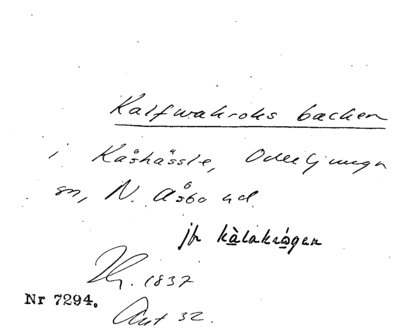 Kalfwakroks backen
i Kåshässle, Oderljunga
sn, N. Åsbo hd.
jfr kàlakrógen
1837
Nr 7294.
Ant 32.